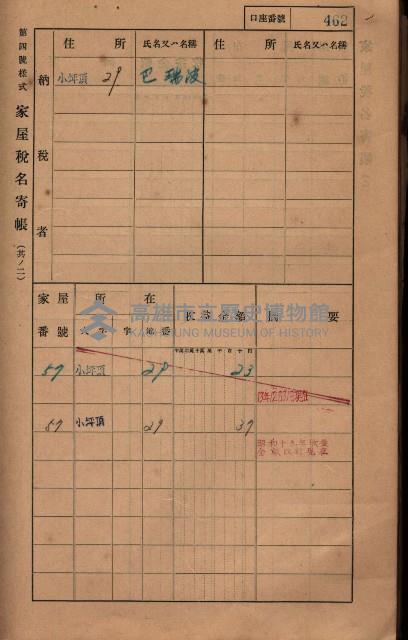 口座番號 462
第四號樣式 家屋稅名寄帳 (其ノ二)
納稅者
住所 氏名又ハ名稱 住所 氏名又ハ名稱
小坪頂 29 巴瑞波
家屋番號 所在 大字 字 地番 收益金額 摘要
高雄市立歷史博物館
KAOHSIUNG MUSEUM OF HISTORY
57 小坪頂 29 23
57 小坪頂 29 37
昭和十五年收益